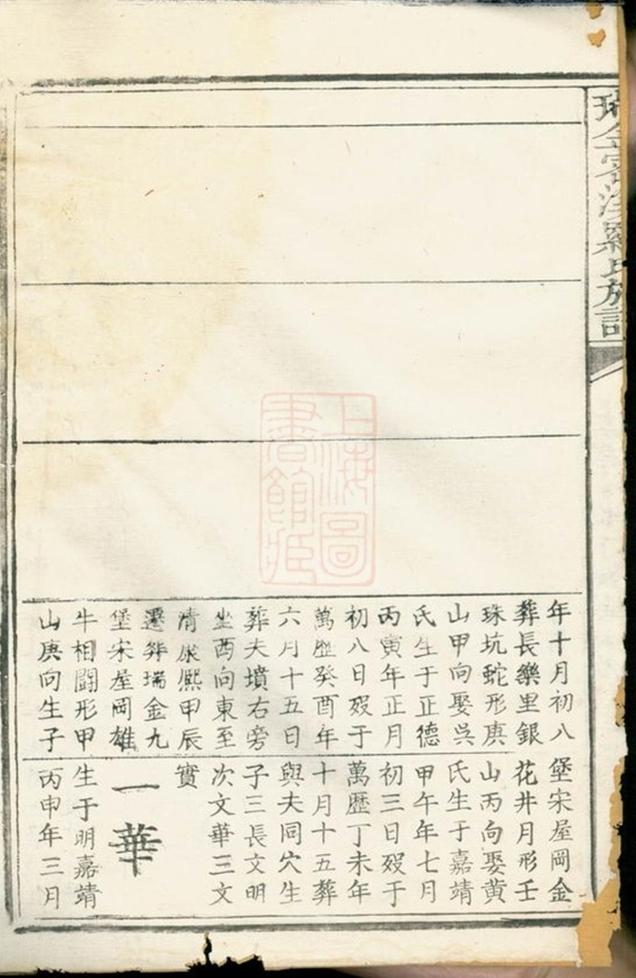 瑞金密溪羅氏族譜
年十月初八
葬長樂里銀
珠坑蛇形庚
山甲向娶吳
氏生于正德
丙寅年正月
初八日歿于
萬歷癸酉年
六月十五日
葬夫墳右旁
坐酉向東至
清康熙甲辰
遷葬瑞金九
堡宋屋岡雄
牛相鬭形甲
山庚向生子
堡宋屋岡金
花井月形壬
山丙向娶黃
氏生于嘉靖
甲午年七月
初三日歿于
萬歷丁未年
十月十五葬
與夫同穴生
子三長文明
次文華三文
實
一華
生于明嘉靖
丙申年三月
上海圖
書館藏